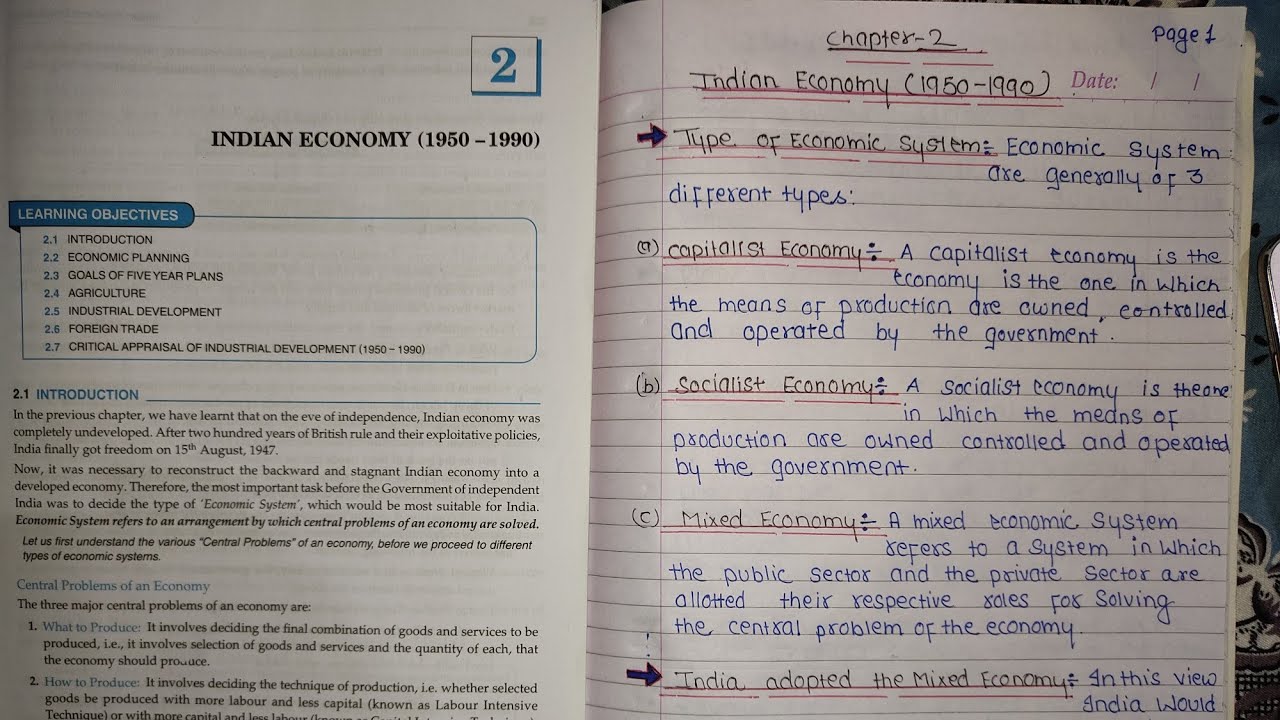 2
INDIAN ECONOMY (1950 – 1990)
LEARNING OBJECTIVES
2.1 INTRODUCTION
2.2 ECONOMIC PLANNING
2.3 GOALS OF FIVE YEAR PLANS
2.4 AGRICULTURE
2.5 INDUSTRIAL DEVELOPMENT
2.6 FOREIGN TRADE
2.7 CRITICAL APPRAISAL OF INDUSTRIAL DEVELOPMENT (1950 – 1990)
2.1 INTRODUCTION
In the previous chapter, we have learnt that on the eve of independence, Indian economy was
completely undeveloped. After two hundred years of British rule and their exploitative policies,
India finally got freedom on 15th August, 1947.
Now, it was necessary to reconstruct the backward and stagnant Indian economy into a
developed economy. Therefore, the most important task before the Government of independent
India was to decide the type of 'Economic System', which would be most suitable for India.
Economic System refers to an arrangement by which central problems of an economy are solved.
Let us first understand the various "Central Problems" of an economy, before we proceed to different
types of economic systems.
Central Problems of an Economy
The three major central problems of an economy are:
1. What to Produce: It involves deciding the final combination of goods and services to be
produced, i.e., it involves selection of goods and services and the quantity of each, that
the economy should produce.
2. How to Produce: It involves deciding the technique of production, i.e. whether selected
goods be produced with more labour and less capital (known as Labour Intensive
Technique) or with more capital and less labour (known as Capital Intensive
Page 1
Chapter-2
Indian Economy (1950-1990) Date: / /
Type of Economic System:- Economic System
are generally of 3
different types:
(a) Capitalist Economy:- A capitalist economy is the
economy is the one in which
the means of production are owned, controlled
and operated by the government.
(b) Socialist Economy:- A socialist economy is the one
in which the means of
production are owned controlled and operated
by the government.
(c) Mixed Economy:- A mixed economic system
refers to a system in which
the public sector and the private sector are
allotted their respective roles for solving
the central problem of the economy.
India adopted the Mixed Economy:- In this view
India would